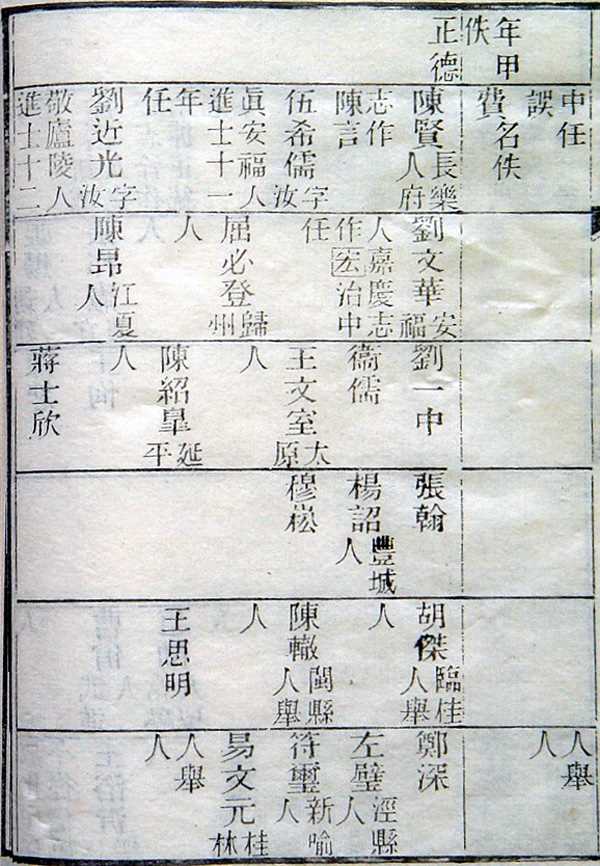 年甲
佚
正德
中任
誤
費名佚
陳賢長樂
人府
志作
陳言
伍希儒字
汝
眞安福人
進士十一
年
任
劉近光字
汝
敬廬陵人
進士十二
劉文華安
福
人嘉慶志
作宏治中
任
屈必登歸
州
人
陳昂江夏
人
劉一中
衞儒
王文室太
原
人
陳紹皐延
平
人
蔣士欣
張翰
楊詔豐城
人
穆崧
胡傑臨桂
人舉
人
陳轍閩縣
人舉
人
王思明
人舉
人
鄭深
左璧涇縣
人
符璽新喻
人
易文元桂
林
人舉
人